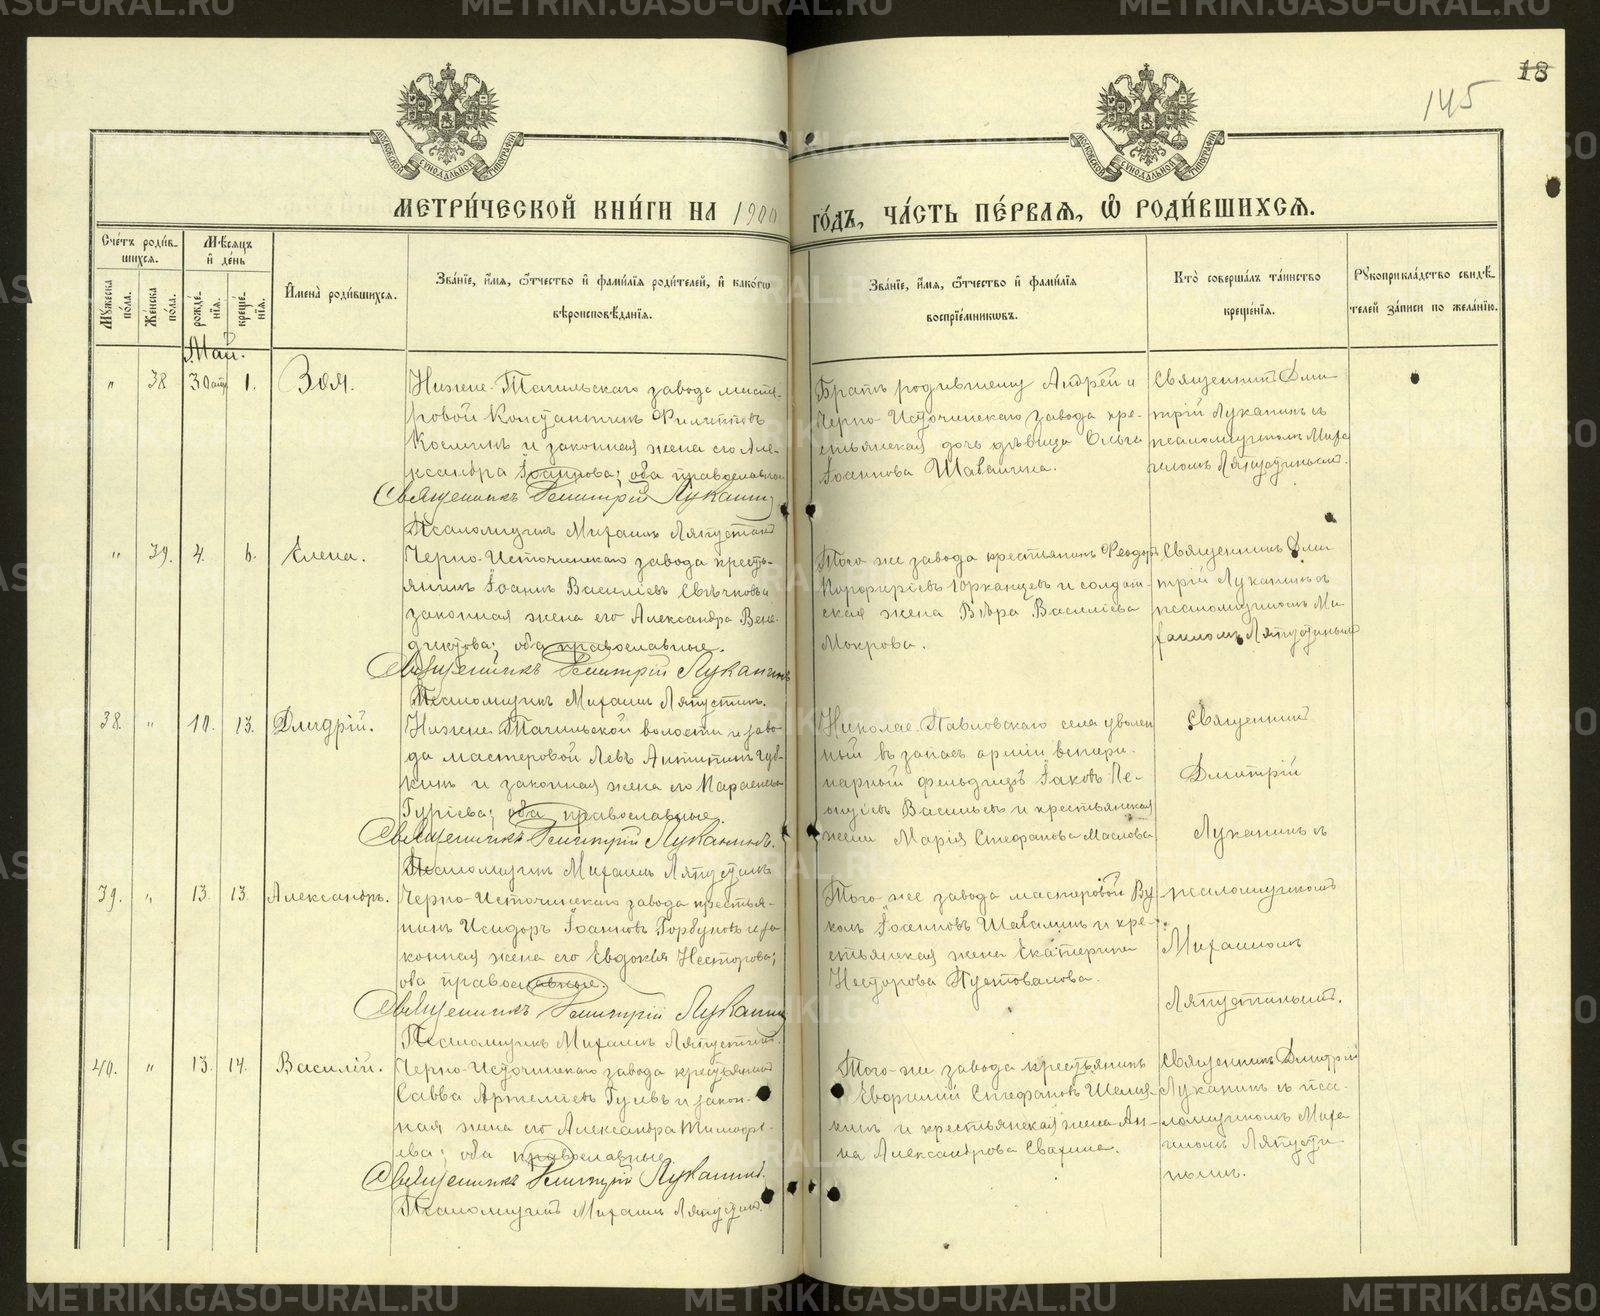 18
145
МОСКОВСКОЙ СѴНОДАЛЬНОЙ ТИПОГРАФІИ
МОСКОВСКОЙ СѴНОДАЛЬНОЙ ТИПОГРАФІИ
МЕТРИ́ЧЕСКОЙ КНИ́ГИ НА 1900 ГО́ДЪ, ЧА́СТЬ ПЕ́РВАѦ, Ѽ РОДИ́ВШИХСѦ.
Сче́тъ роди́в-
шихсѧ.
Мѣсѧцъ
и҆ де́нь
Мꙋжеска
по́ла.
Же́нска
по́ла.
рожде́-
нїѧ.
креще́-
нїѧ.
И҆мена̀ роди́вшихсѧ.
Зва́нїе, и҆́мѧ, ѻ҆́тчество и҆ фами́лїѧ роди́телей, и҆ како́гѡ
вѣроисповѣ́данїѧ.
Зва́нїе, и҆́мѧ, ѻ҆́тчество и҆ фами́лїѧ
воспрїе́мникѡвъ.
Кто̀ соверша́лъ та́инство
креще́нїѧ.
Рꙋкоприкла́дство свидѣ́-
телей за́писи по жела́нїю.
Май.
„ 38 30 апр 1. Зоя.
Нижне-Тагильскаго завода масте-
ровой Константинъ Филипповъ
Косминъ и законная жена его Але-
ксандра Іоаннова; оба православные
Священникъ Димитрій Луканин
Псаломщикъ Михаилъ Ляпустинъ
Братъ родившему Андрей и
Черно-Источинскаго завода кре-
стьянская дочь дѣвица Ольга
Іоаннова Шавлина.
Священникъ Дми
трій Луканинъ съ
псаломщикомъ Миха
иломъ Ляпустинымъ.
„ 39. 4. 6. Елена.
Черно-Источинскаго завода кресть-
янинъ Іоаннъ Василіевъ Свѣчковъ и
законная жена его Александра Вене-
диктова; оба православные.
Священникъ Димитрій Луканинъ
Псаломщикъ Михаилъ Ляпустинъ.
Того же завода крестьянинъ Феодоръ
Порфиріевъ Юрканцевъ и солдат-
ская жена Вѣра Василіева
Мокрова.
Священникъ Дми
трій Луканинъ съ
псаломщикомъ Ми
хаиломъ Ляпустинымъ
38. „ 10. 13. Дмитрій.
Нижне-Тагильской волости и заво-
да мастеровой Левъ Антипинъ Гув-
кинъ и законная жена его Параскева
Гуріева; оба православные.
Священникъ Димитрій Луканинъ.
Псаломщикъ Михаилъ Ляпустинъ
Николае-Павловскаго села уволен
ный въ запасъ арміи ветери-
нарный фельдшеръ Іаковъ
Васильевъ и крестьянская
жена Марія Стефанова Маслова
Священникъ
Дмитрій
Луканинъ съ
псаломщикомъ
Михаиломъ
Ляпустинымъ.
39. „ 13. 13. Александръ.
Черно-Источинскаго завода крестья-
нинъ Исидоръ Іоанновъ Горбуновъ и за
конная жена его Евдокія Несторова;
оба православные.
Священникъ Димитрій Луканин
Псаломщикъ Михаилъ Ляпустинъ.
Того же завода мастеровой Ву
колъ Іоанновъ Шавлинъ и кре-
стьянская жена Екатерина
Несторова Пустовалова.
40. „ 13. 14. Василій.
Черно-Источинскаго завода крестьянинъ
Савва Артеміевъ Гусевъ и закон-
ная жена его Александра Тимофе-
ева; оба православные.
Священникъ Димитрій Луканинъ.
Псаломщикъ Михаилъ Ляпустинъ.
Того-же завода крестьянинъ
Стефановъ
и крестьянская жена Ан-
на Александрова
Священникъ Дмитрій
Луканинъ съ пса-
ломщикомъ Миха
иломъ Ляпусти
нымъ.
METRIKI.GASO-URAL.RU